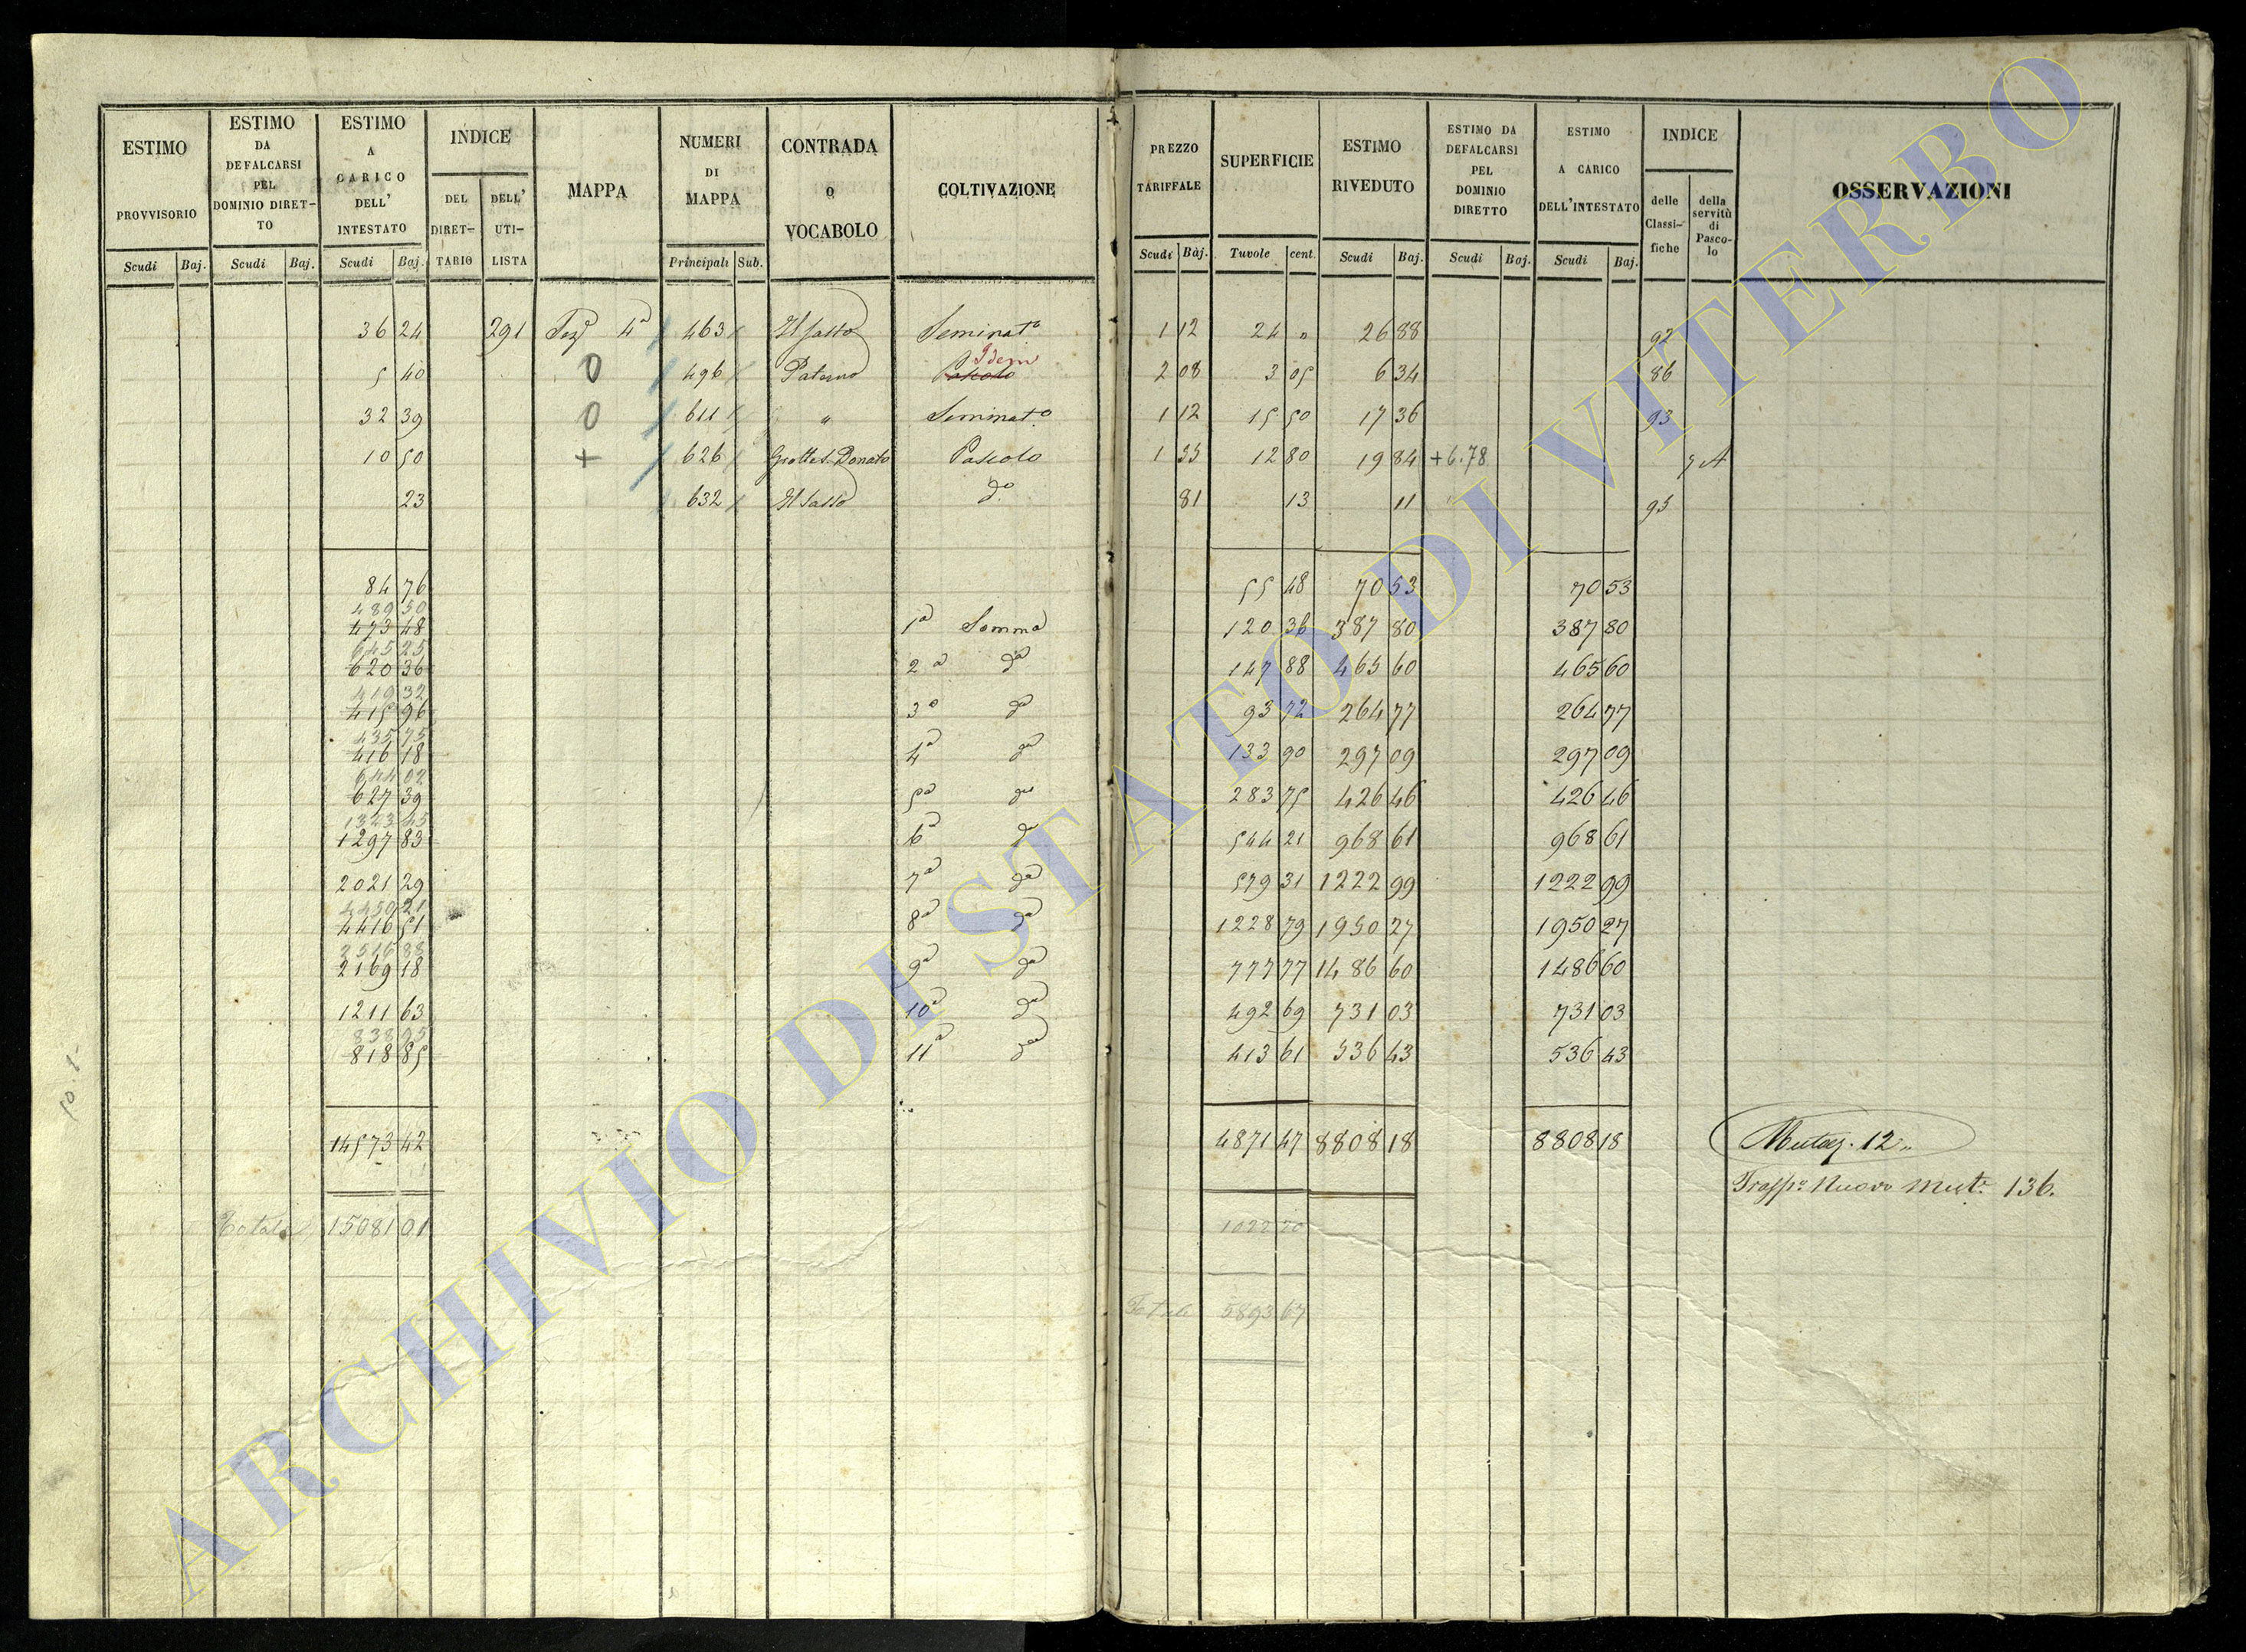 ESTIMO PROVVISORIO
ESTIMO DA DEFALCARSI PEL DOMINIO DIRET-TO
ESTIMO A CARICO DELL' INTESTATO
INDICE
DEL DIRET-TARIO
DELL' UTI-LISTA
MAPPA
NUMERI DI MAPPA
CONTRADA O VOCABOLO
COLTIVAZIONE
PREZZO TARIFFALE
SUPERFICIE
ESTIMO RIVEDUTO
ESTIMO DA DEFALCARSI PEL DOMINIO DIRETTO
ESTIMO A CARICO DELL'INTESTATO
INDICE
delle Classi-fiche
della servitù di Pasco-lo
OSSERVAZIONI
Scudi Baj. Scudi Baj. Scudi Baj. Principali Sub. Scudi Baj. Tavole cent. Scudi Baj. Scudi Baj. Scudi Baj.
36 24 291 4ª 463 Il Sasso Seminatº 1 12 24 " 26 88 92
Idem
5 40 0 496 Paterno Pascolo 2 08 3 05 6 34 86
32 39 0 611 " Seminatº 1 12 15 50 17 36 93
10 50 + 626 Grotte S. Donato Pascolo 1 55 12 80 19 84 +6.78
23 632 Il Sasso dº 81 13 11 95
84 76 55 48 70 53 70 53
489 50
473 48 1ª Somma 120 36 387 80 387 80
645 25
620 36 2ª dª 147 88 465 60 465 60
419 32
415 96 3ª dª 93 72 264 77 264 77
435 75
416 18 4ª dª 133 90 297 09 297 09
644 02
627 39 5ª dª 283 75 426 46 426 46
1323 45
1297 83 6ª dª 544 21 968 61 968 61
2021 29 7ª dª 579 31 1222 99 1222 99
4450 21
4416 51 8ª dª 1228 79 1950 27 1950 27
2516 88
2169 18 9ª dª 777 77 1486 60 1486 60
1211 63 10ª dª 492 69 731 03 731 03
838 95
818 85 11ª dª 413 61 536 43 536 43
14573 42 4871 47 8808 18 8808 18 Mutaz. 12
Nuovo 136.
Totale 15081 01 1022 20
Totale 5893 67
ARCHIVIO DI STATO DI VITERBO